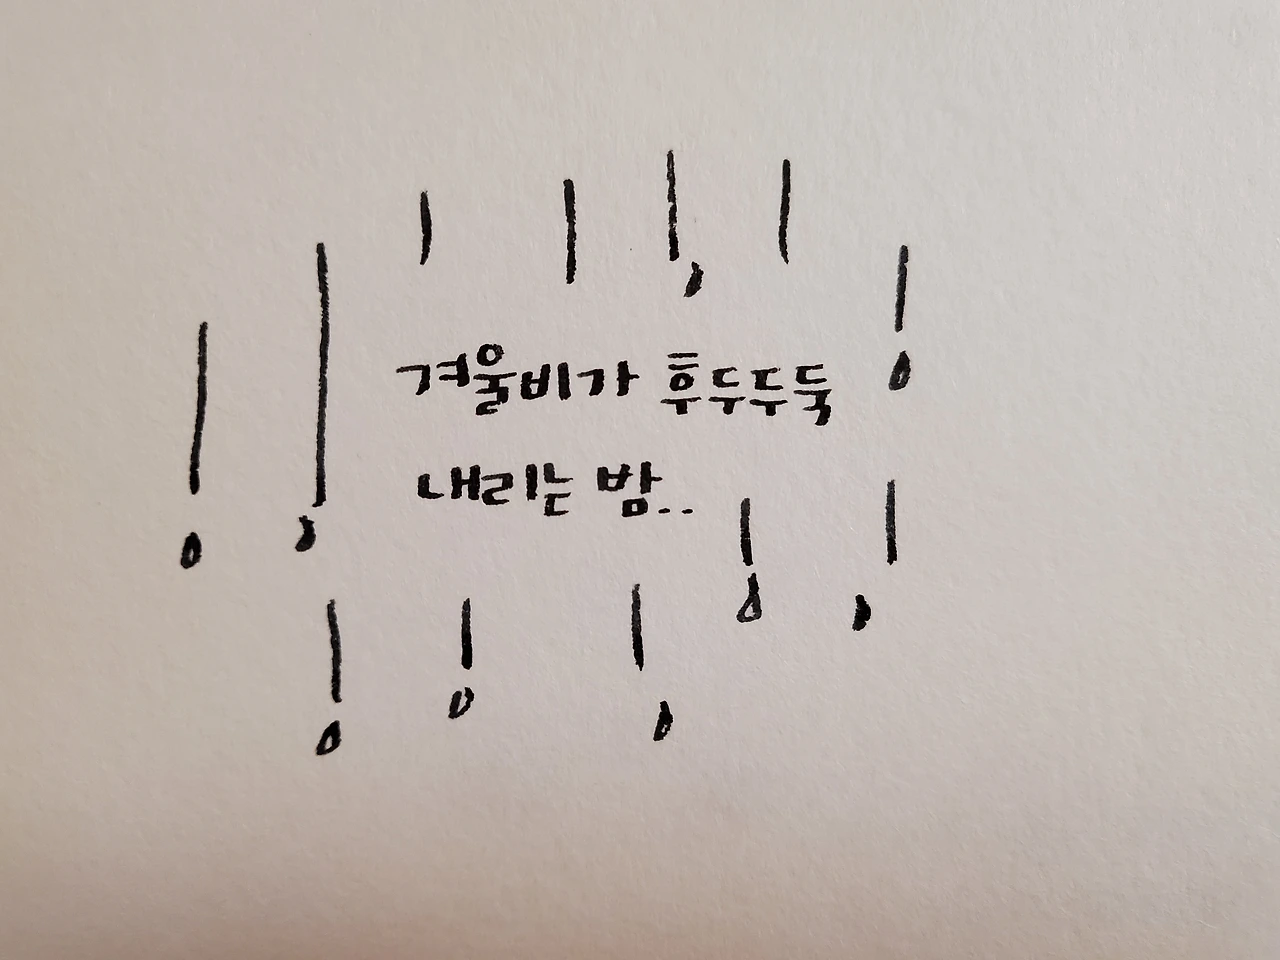 겨울비가 후두두둑
내리는 밤..